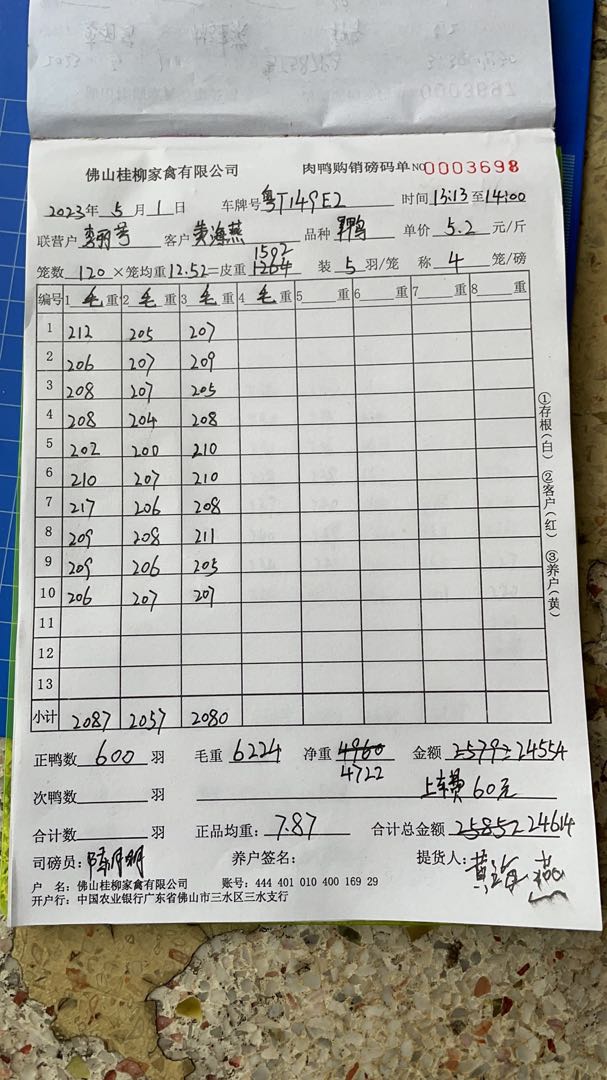 佛山桂柳家禽有限公司 肉鸭购销磅码单 NO 0003698
2023年 5月 1日 车牌号 粤T149E2 时间 13:13 至 14:00
联营户 客户 黄海燕 品种 单价 5.2 元/斤
1502
笼数 120 ×笼均重 12.52 =皮重 1264 装 5 羽/笼 称 4 笼/磅
编号 1 毛 重 2 毛 重 3 毛 重 4 毛 重 5 重 6 重 7 重 8 重
1 212 205 207
2 206 207 209
3 208 207 205
4 208 204 208
5 202 200 210
6 210 207 210
7 217 206 208
8 209 208 211
9 209 206 205
10 206 207 207
11
12
13
小计 2087 2057 2080
①存根(白) ②客户(红) ③养户(黄)
正鸭数 600 羽 毛重 6224 净重 4960 金额 25792 24554
4722
次鸭数 羽 上车费60元
合计数 羽 正品均重: 7.87 合计总金额 25852 24614
司磅员: 养户签名: 提货人: 黄海燕
户 名: 佛山桂柳家禽有限公司 账号: 444 401 010 400 169 29
开户行: 中国农业银行广东省佛山市三水区三水支行